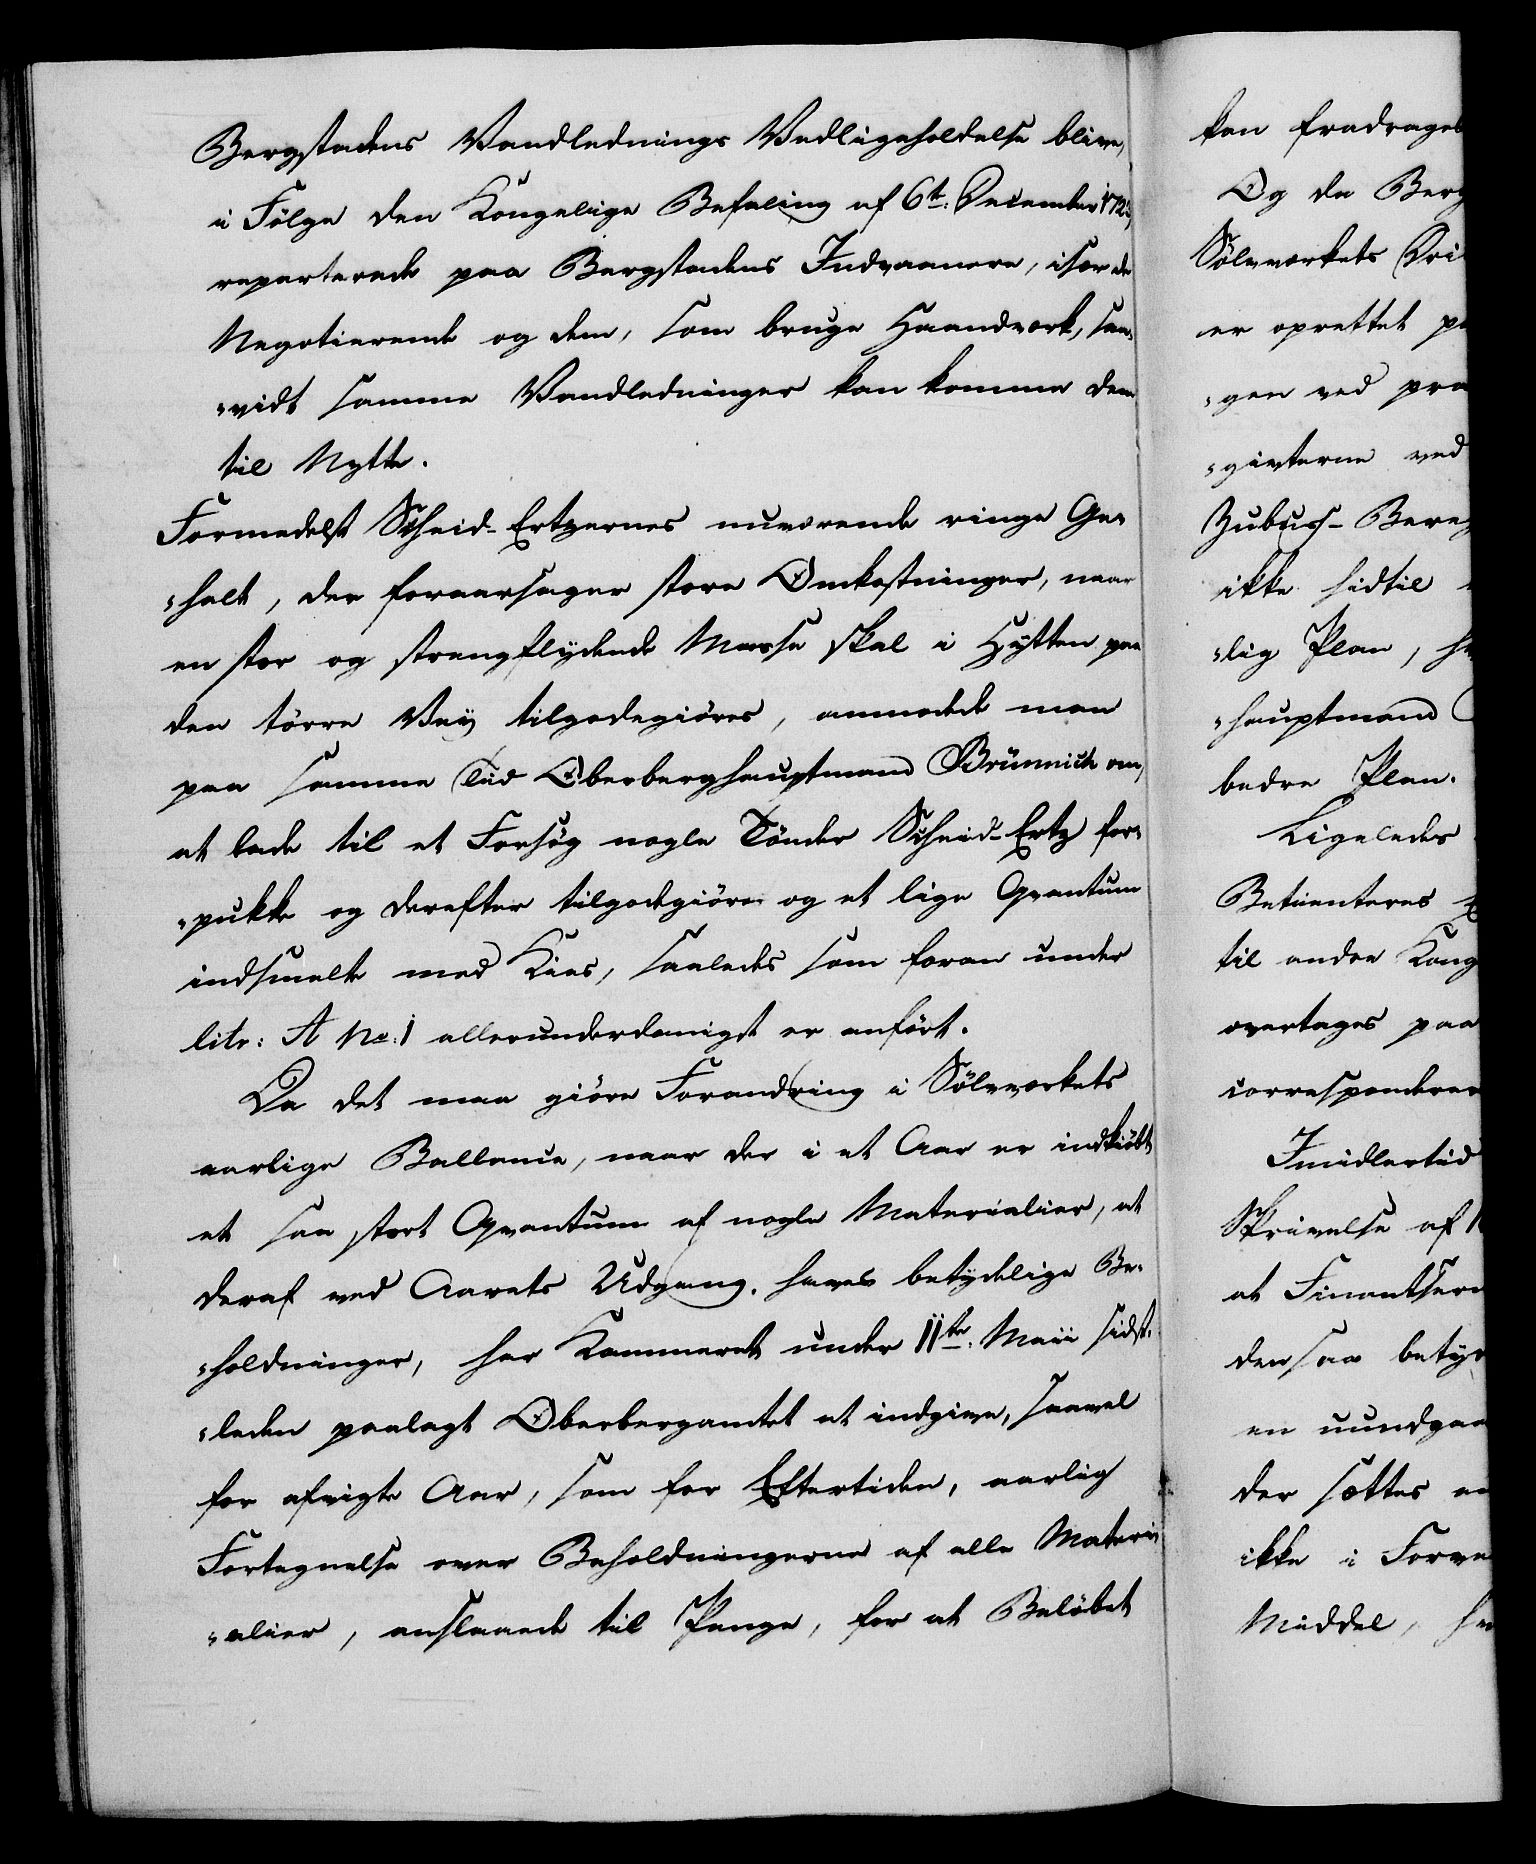 Bergstadens Vandlednings Vedligeholdelse blive,
i Følge den Kongelige Befaling af 6te: December
reparterede paa Bergstadens Indvaanere, især de
Negotierende og dem, som bruge Haandværk, saa
"vidt samme Vandledninger kan komme dem
til Nytte.
Formedelst Scheid-Ertzernes nuværende ringe Ge"
"halt, der foraarsager store Omkostninger, naar
en stor og strengflydende Masse skal i Hytten paa
den tørre Vey tilgodegiøres, anmodede man
paa samme Tiid Oberberghauptmand Brünnich om,
at lade til et Forsøg nogle Tönder Scheid-Ertz for"
"pukke og derefter tilgodegiøre og et lige Qvantum
indsmelte med Kies, saaledes som foran under
litr: A No: 1 allerunderdanigst er anført.
Da det maa giøre Forandring i Sølvværkets
aarlige Ballance, naar der i et Aar er indkiøbt
et saa stort Qvantum af nogle Materialier, at
deraf ved Aarets Udgang haves betydelige Be"
"holdninger, har Kammeret under 11te: Maii sidst"
"leden paalagt Oberbergamtet at indgive, saavel
for afvigte Aar, som for Eftertiden, aarlig
Fortegnelse over Beholdningerne af alle Materi"
"alier, anslaaede til Penge, for at Beløbet
kan fradrages
Og da Berg
Sølvværkets Dri
er oprettet pa
"gen ved pro
"givterne ved
Zubuss-Bereg
ikke hidtil
"lig Plan, h
"hauptmand
bedre Plan.
Ligeledes
Betienteres
til andre Kong
overtages paa
correspondere
Imidlertid
Skrivelse af 1
at Finantser
den saa betyd
en uundgaa
der sættes en
ikke i Forve
Middel, h